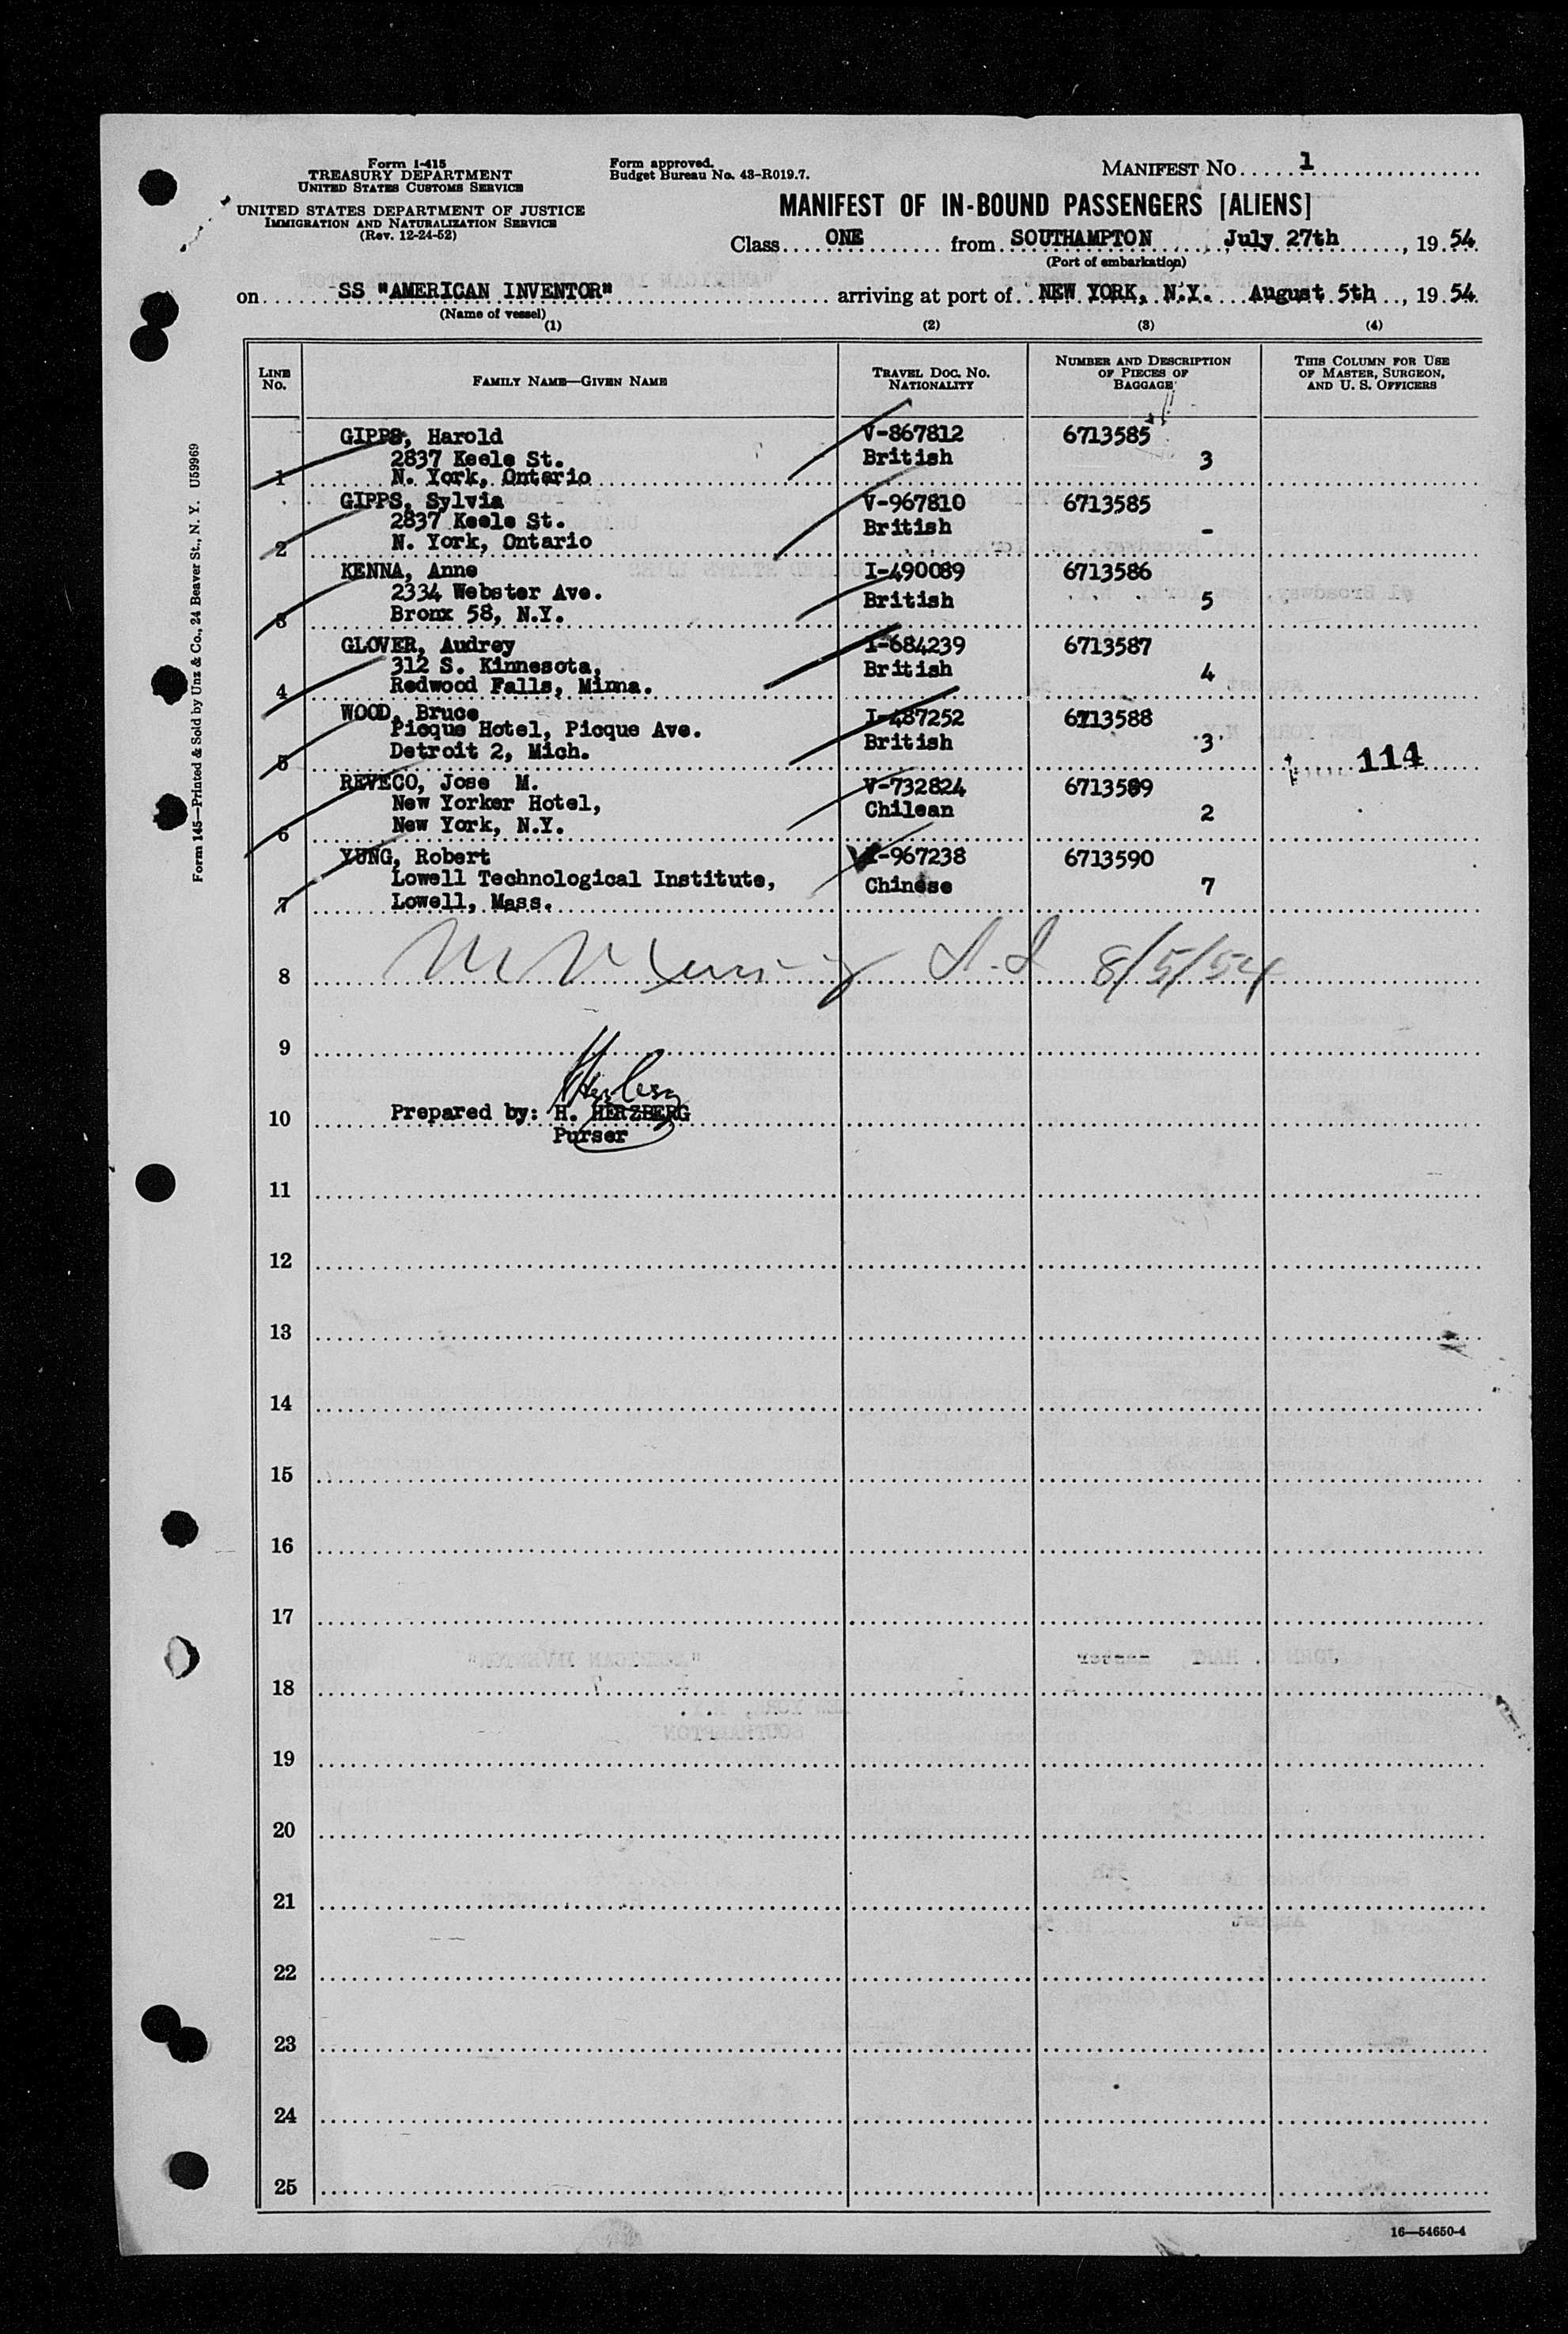 Form I-415
TREASURY DEPARTMENT
UNITED STATES CUSTOMS SERVICE
UNITED STATES DEPARTMENT OF JUSTICE
IMMIGRATION AND NATURALIZATION SERVICE
(Rev. 12-24-52)
Form approved.
Budget Bureau No. 43-R019.7.
MANIFEST NO. 1
MANIFEST OF IN-BOUND PASSENGERS [ALIENS]
Class ONE from SOUTHAMPTON July 27th, 19 54
(Port of embarkation)
on SS "AMERICAN INVENTOR" arriving at port of NEW YORK, N.Y. August 5th, 19 54
(Name of vessel)
(1) (2) (3) (4)
LINE NO.
FAMILY NAME—GIVEN NAME
TRAVEL DOC. NO. NATIONALITY
NUMBER AND DESCRIPTION OF PIECES OF BAGGAGE
THIS COLUMN FOR USE OF MASTER, SURGEON, AND U. S. OFFICERS
GIPPS, Harold V-867812 6713585
2837 Keele St. British 3
1 N. York, Ontario
GIPPS, Sylvia V-967810 6713585
2837 Keele St. British -
2 N. York, Ontario
KENNA, Anne I-490089 6713586
2334 Webster Ave. British 5
3 Bronx 58, N.Y.
GLOVER, Audrey I-684239 6713587
312 S. Kinnesota, British 4
4 Redwood Falls, Minna.
WOOD, Bruce I-487252 6713588
Picque Hotel, Picque Ave. British 3
5 Detroit 2, Mich. 114
REVECO, Jose M. V-732824 6713589
New Yorker Hotel, Chilean 2
6 New York, N.Y.
YUNG, Robert V-967238 6713590
Lowell Technological Institute, Chinese 7
7 Lowell, Mass.
8 8/5/54
9
10 Prepared by: H. HERZBERG
Purser
11
12
13
14
15
16
17
18
19
20
21
22
23
24
25
16—54650-4
Form 145—Printed & Sold by Unz & Co., 24 Beaver St., N. Y. U59969